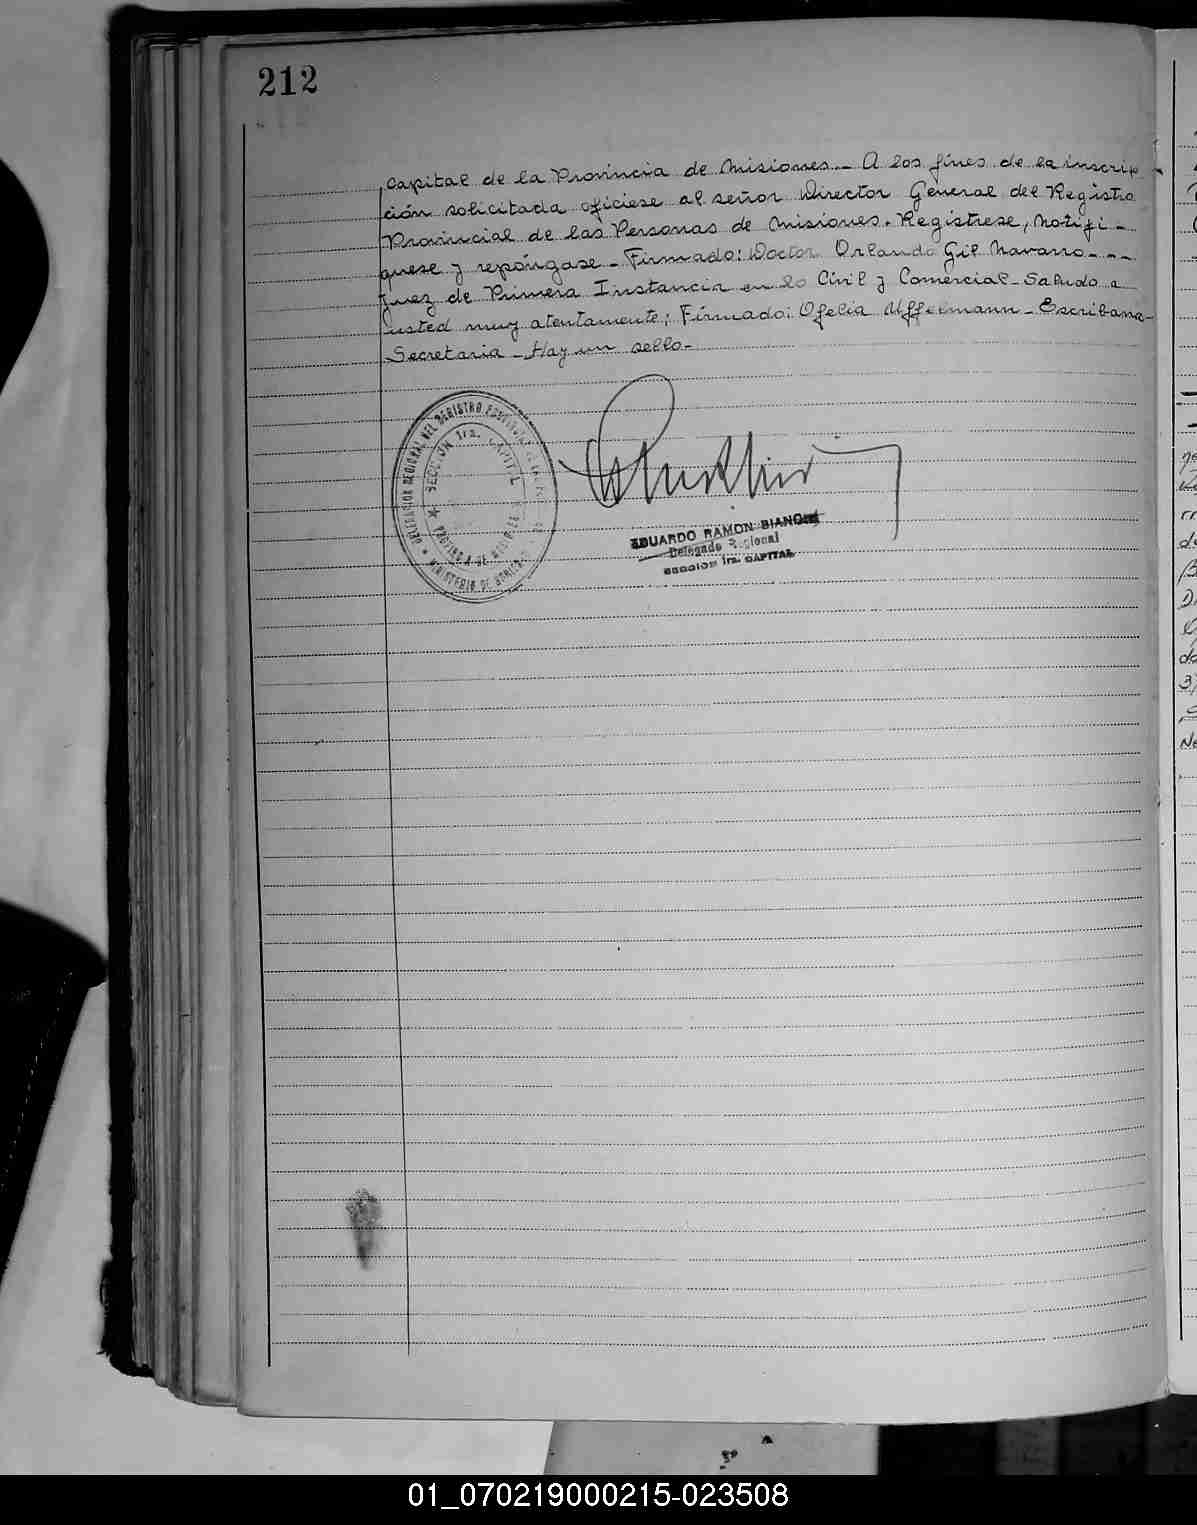 212
capital de la Provincia de Misiones._ A los fines de la inscrip
ción solicitada ofíciese al señor Director General del Registro
Provincial de las Personas de Misiones. Regístrese, Notifí-
quese y repóngase _ Firmado: Doctor Orlando Gil Navarro_ _ _
Juez de Primera Instancia en lo Civil y Comercial_ Saludo a
usted muy atentamente; Firmado: Ofelia Uffelmann _ Escribana-
Secretaria _ Hay un sello-
DELEGACION REGIONAL DEL REGISTRO
SECCION 1ra. CAPITAL
PROVINCIA DE MISIONES
MINISTERIO DE
EDUARDO RAMON BIANCHI
Delegado Regional
SECCION 1ra. CAPITAL
01_070219000215-023508